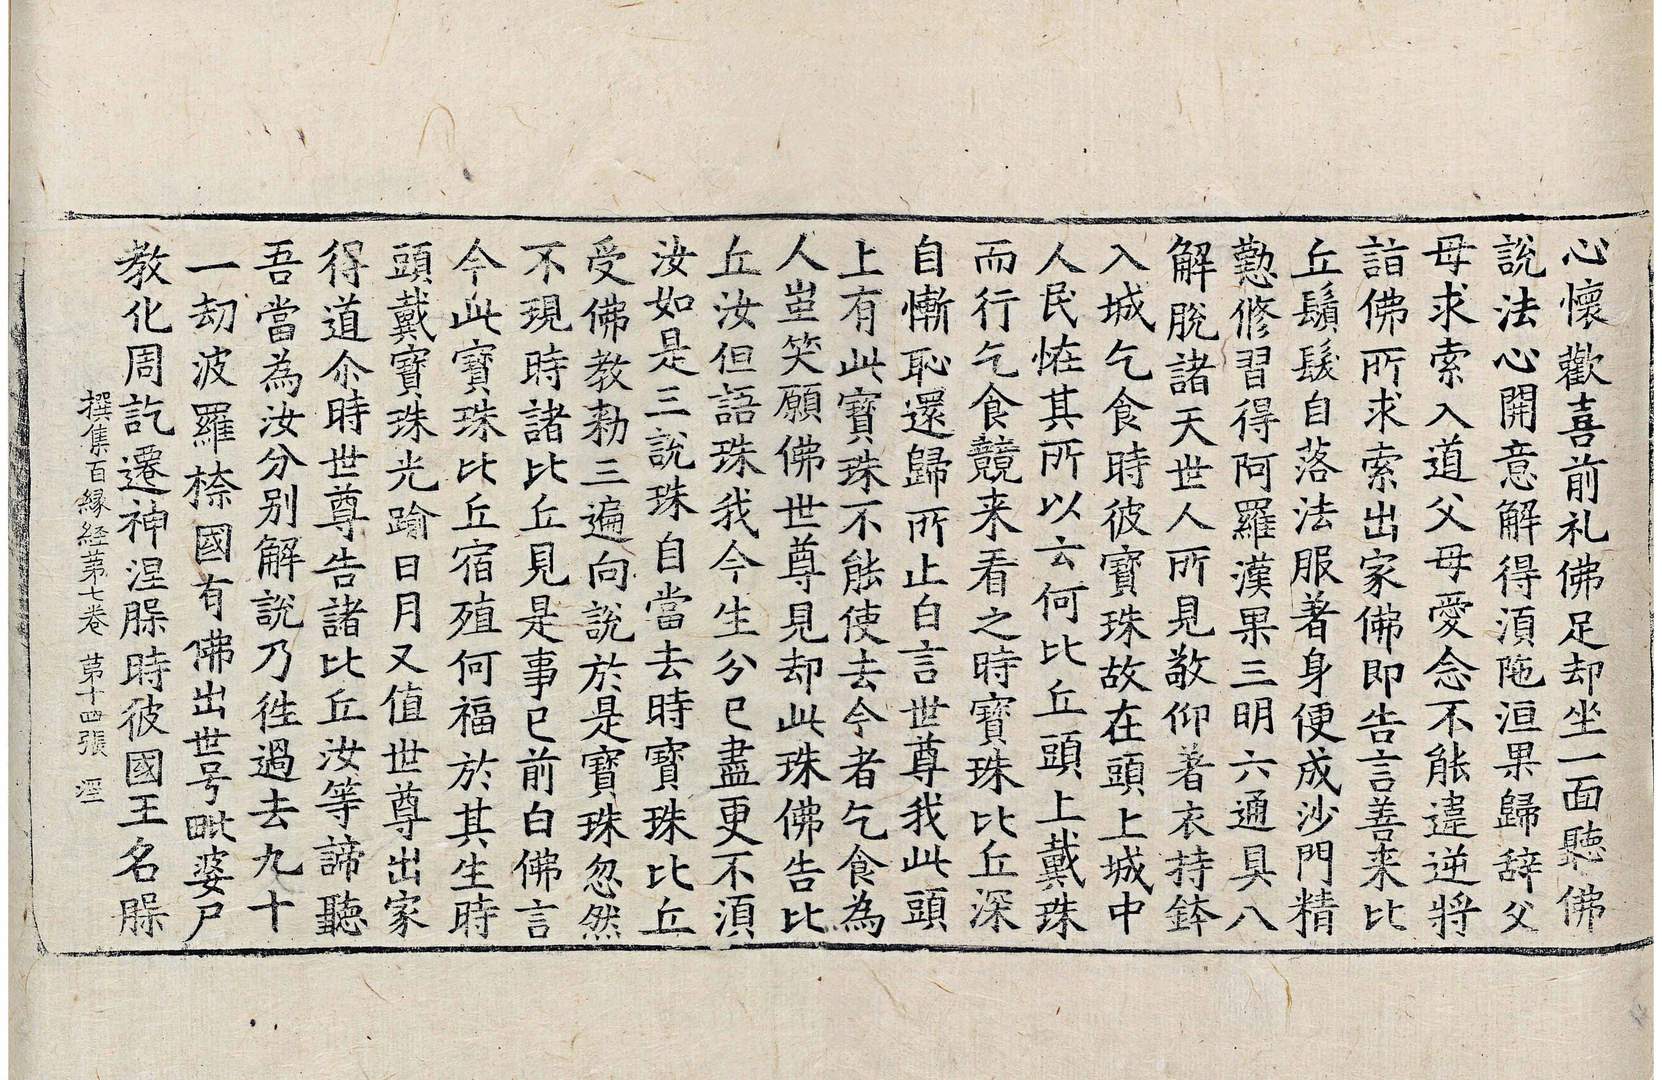 心懷歡喜前礼佛足却坐一面聽佛
說法心開意解得湏陁洹果歸辞父
母求索入道父母愛念不能違逆將
詣佛所求索出家佛即告言善来比
丘鬚髮自落法服著身便成沙門精
懃修習得阿羅漢果三明六通具八
解脫諸天世人所見敬仰著衣持鉢
入城乞食時彼寶珠故在頭上城中
人民恠其所以云何比丘頭上戴珠
而行乞食競来看之時寶珠比丘深
自慚恥還歸所止白言世尊我此頭
上有此寶珠不能使去今者乞食為
人蚩笑願佛世尊見却此珠佛告比
丘汝但語珠我今生分已盡更不湏
汝如是三說珠自當去時寶珠比丘
受佛教勑三遍向說於是寶珠忽然
不現時諸比丘見是事已前白佛言
今此寶珠比丘宿殖何福於其生時
頭戴寶珠光踰日月又值世尊出家
得道尒時世尊告諸比丘汝等諦聽
吾當為汝分別解說乃徃過去九十
一劫波羅㮈國有佛出世号毗婆尸
教化周訖遷神涅䏶時彼國王名䏶
撰集百緣経苐七卷 苐十四張 涇